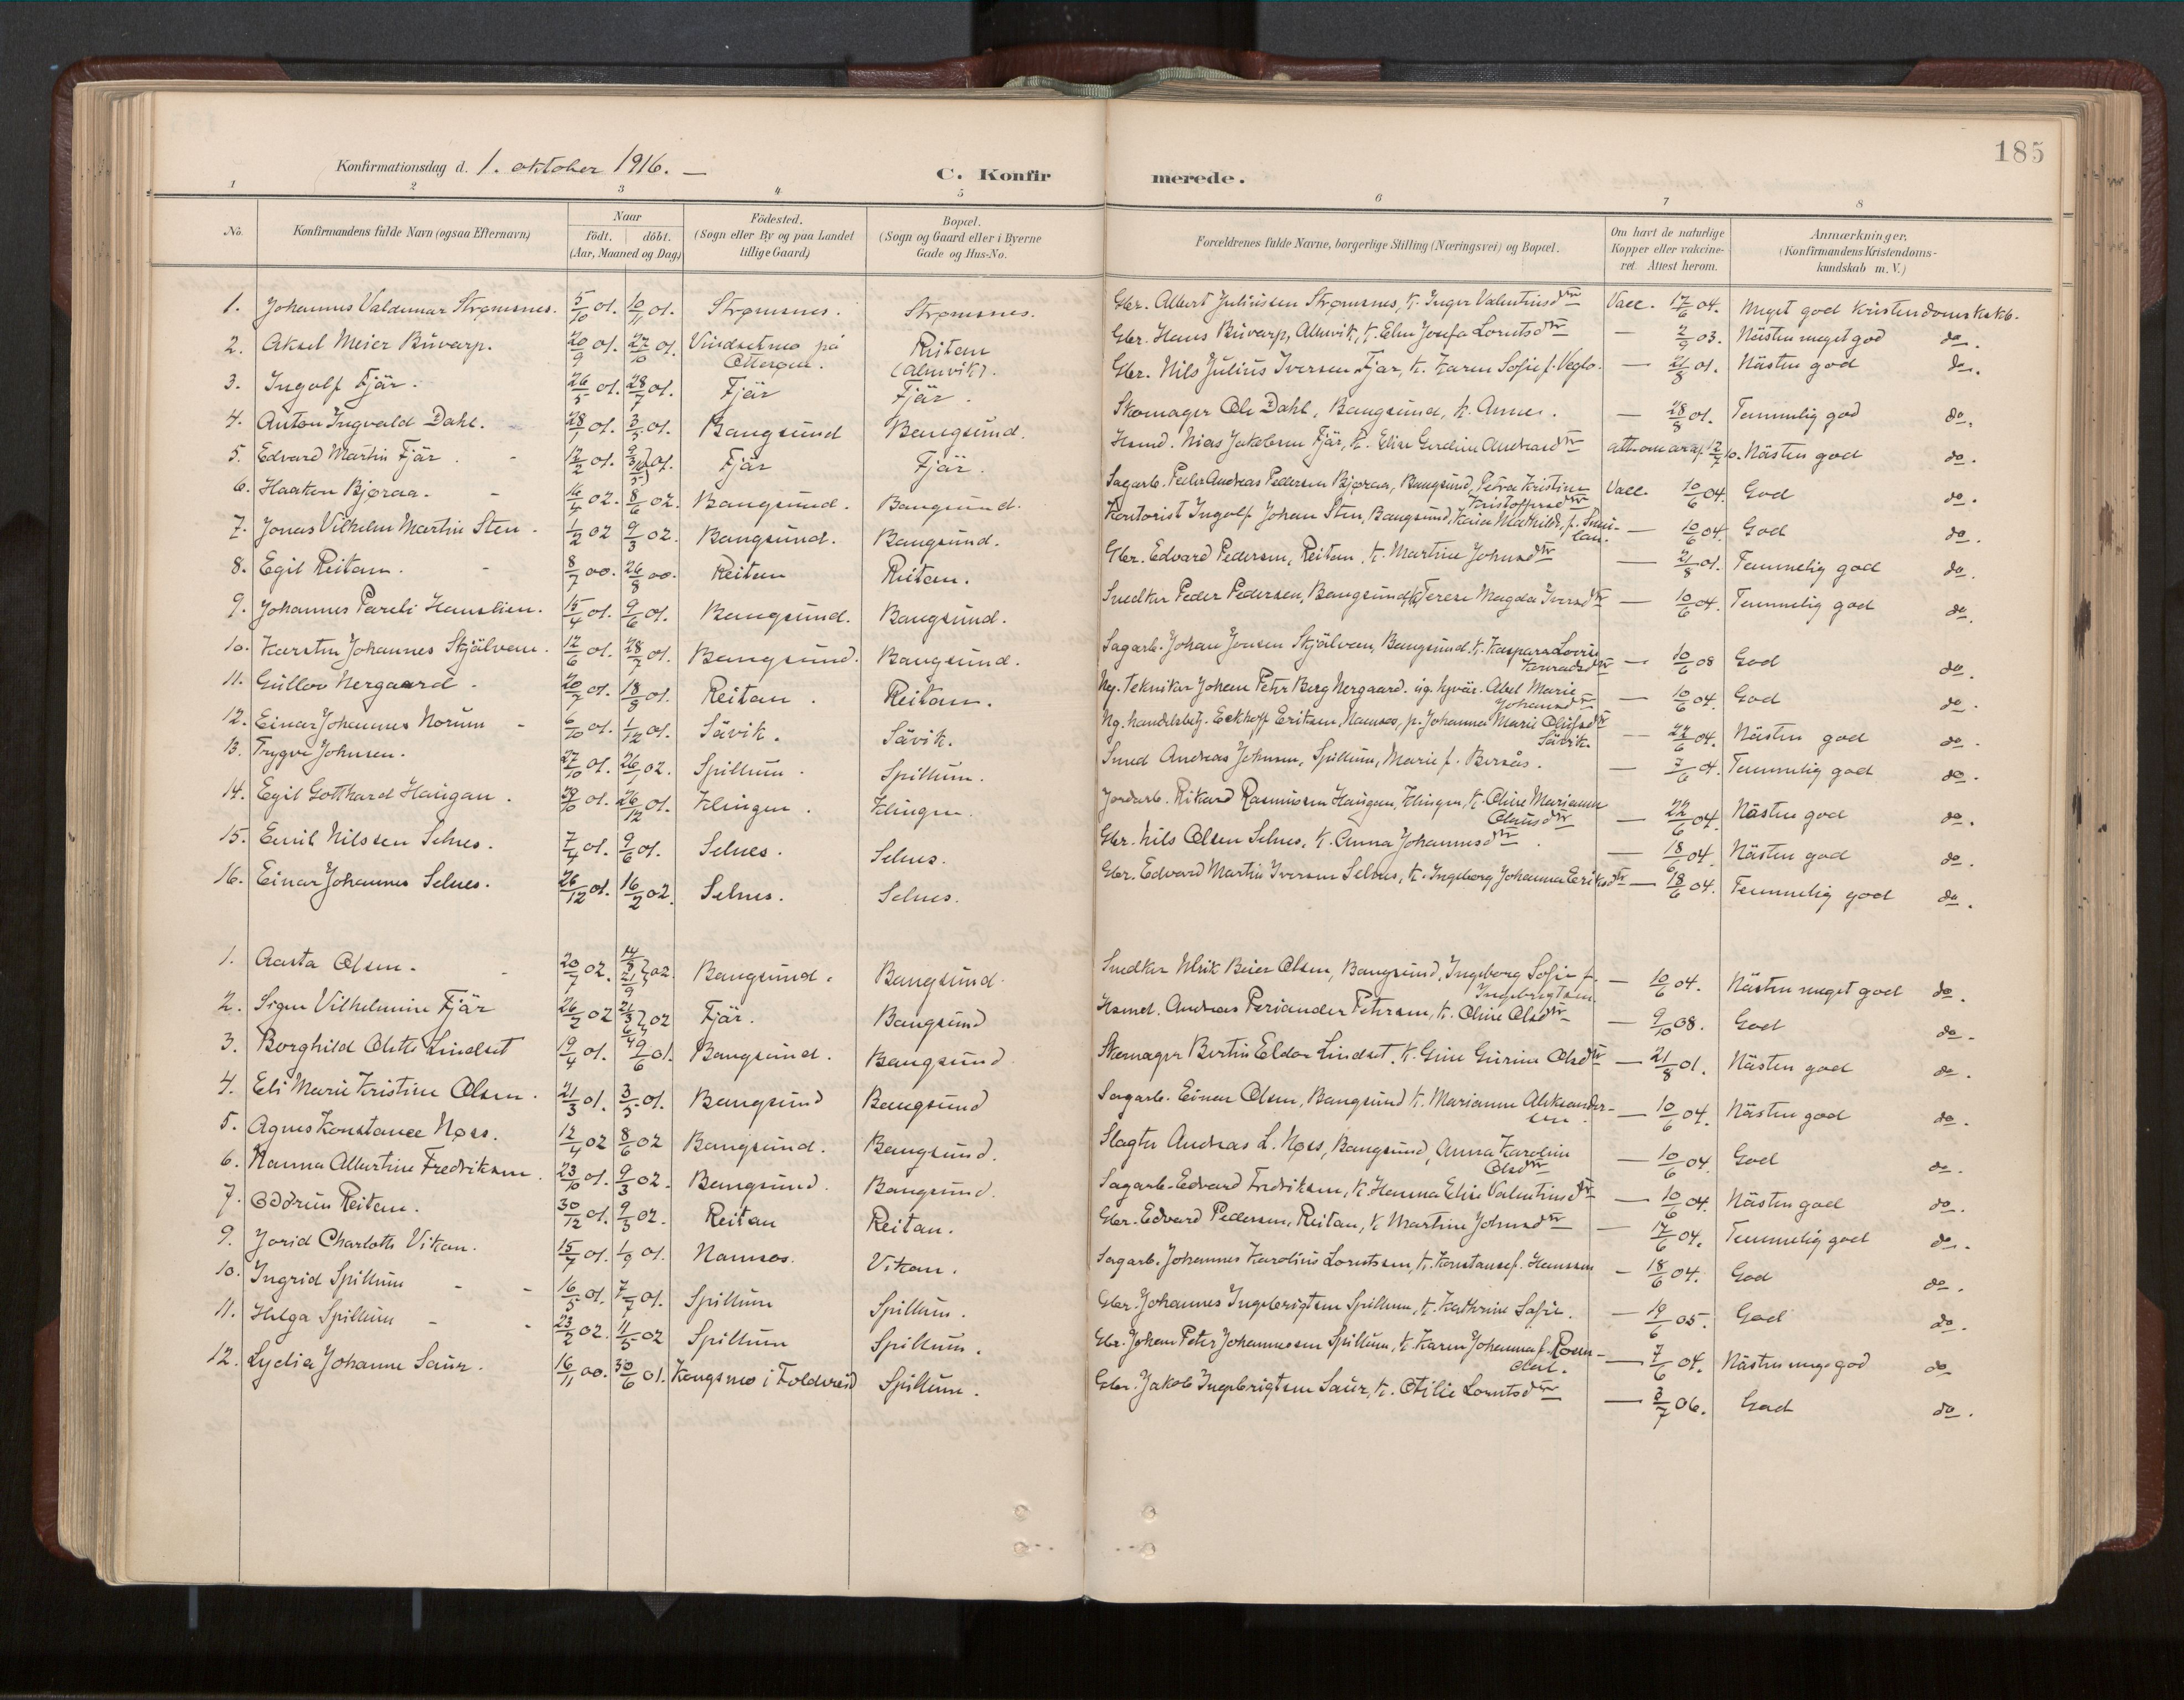 185
Konfirmationsdag d. 1. oktober 1916. —
C. Konfirmerede.
1 2 3 4 5 6 7 8
No.
Konfirmandens fulde Navn (ogsaa Efternavn)
Naar
født. døbt.
(Aar, Maaned og Dag)
Födested.
(Sogn eller By og paa Landet
tillige Gaard)
Bopæl.
(Sogn og Gaard eller i Byerne
Gade og Hus-No.
Forældrenes fulde Navne, borgerlige Stilling (Næringsvei) og Bopæl.
Om havt de naturlige
Kopper eller vakcine-
ret. Attest herom.
Anmærkninger,
(Konfirmandens Kristendoms-
kundskab m. V.)
1. Johannes Valdemar Strømsnes. 5/10 01. 10/11 01. Strømsnes. Strømsnes. Gbr. Albert Juliussen Strømsnes, k. Inger Valentinsdtr Vacc. 17/6 04. Meget god kristendomskskb.
2. Aksel Meier Buvarp. 20/9 01. 27/10 01. Vindsetmo på Otterøen. Reitan (Almvik). Gbr. Hans Buvarp, Almvik, k. Elen Josefa Lorntsdtr — 2/9 03. Nästen meget god do.
3. Ingolf Fjär. 26/5 01. 28/7 01. Fjär Fjär. Gbr. Nils Julius Iversen Fjär, k. Karen Sofie f. Veglo. — 21/8 01. Nästen god do.
4. Anton Ingvald Dahl. 28/1 01. 3/5 01. Bangsund Bangsund. Skomager Ole Dahl, Bangsund, k. Anna. — 28/8 01. Temmelig god do.
5. Edvard Martin Fjär. 12/2 01. Fjär Fjär. Nästen god do.
6. Haakon Bjøraa. 16/4 02. 8/6 02. Bangsund. Bangsund. Sagarb. Peder Andreas Pedersen Bjøraa, Bangsund, Petra Kristine Kristoffersdtr Vacc. 10/6 04. God do.
7. Jonas Vilhelm Martin Sten. 1/2 02 9/3 02. Bangsund. Bangsund. Kontorist Ingolf Johan Sten, Bangsund, — 10/6 04. God do.
8. Egil Reitan. 8/7 00. 26/8 00. Reitan Reitan. Gbr. Edvard Pedersen, Reitan, k. Martine Johnsdtr — 21/8 01. Temmelig god do.
9. Johannes Pareli Hanslien. 15/4 01. 9/6 01. Bangsund. Bangsund. Snedker Peder Pedersen, Bangsund, k. Terese Magda Iversdtr — 10/6 04. Temmelig god do.
10. Karsten Johannes Skjälvan. 12/6 01. 28/7 01. Bangsund. Bangsund. Sagarb. Johan Jonsen Skjälvan, Bangsund. k. Kaspara Lovise Konradsdtr — 10/6 08 God do.
11. Gullov Nergaard. 20/7 01. 18/8 01. Reitan. Reitan. Ng. Tekniker Johan Peter Berg Nergaard. Abel Marie Johansdtr — 10/6 04. God do.
12. Einar Johannes Norum 6/10 01. 1/12 01. Sävik. Sävik. Ng. handelsbetj. Eckhoff Eriksen, Namsos, p. Johanna Marie Olufsdtr Sävik. — 22/6 04. Nästen god do.
13. Trygve Johnsen. 27/10 01. 26/1 02. Spillum. Spillum. Smed Andreas Johnsen, Spillum, Marie f. Bersås. — 7/6 04. Temmelig god do.
14. Egil Gotthard Haugan. 29/10 01. 26/12 01. Klingen. Klingen. Jordarb. Rikard Rasmussen Haugan, Klingen, k. Oline Mariane Olausdtr — 22/6 04. Nästen god do.
15. Emil Nilssen Selnes. 7/4 01. 9/6 01. Selnes. Selnes. Gbr. Nils Olsen Selnes, k. Anna Johannesdtr. — 18/6 04. Nästen god do.
16. Einar Johannes Selnes. 26/12 01. 16/2 02. Selnes. Selnes. Gbr. Edvard Martin Iversen Selnes, k. Ingeborg Johanna Eriksdtr — 18/6 04. Temmelig god do.
1. Aasta Olsen. 20/7 02. 14/8 21/9 } 02. Bangsund. Bangsund. Snedker Ulrik Beier Olsen, Bangsund, Ingeborg Sofie f. Ingebrigtsen. — 10/6 04. Nästen meget god do.
2. Signe Vilhelmine Fjär 26/2 02 21/3 6/4 } 02 Fjär. Bangsund Hsmd. Andreas Periander Petersen, k. Oline Olsdtr — 9/10 08. God do.
3. Borghild Oletta Lindset 19/4 01. 9/6 01. Bangsund. Bangsund Skomager Bertin Eldor Lindset. k. Gine Gurine Olsdtr — 21/8 01. Nästen god do.
4. Eli Marie Kristine Olsen. 21/3 01. 3/5 01. Bangsund Bangsund Sagarb. Einar Olsen, Bangsund k. Marianne Aleksandersen. — 10/6 04. Nästen god do.
5. Agnes Konstance Nøss. 12/4 02 8/6 02 Bangsund. Bangsund. Slagter Andreas L. Nøss, Bangsund, Anna Karoline Olsdtr — 10/6 04. God do.
6. Hanna Albertine Fredriksen. 23/10 01. 9/3 02. Bangsund. Bangsund. Sagarb. Edvard Fredriksen, k. Hanna Elise Valentinsdtr — 10/6 04. Nästen god do.
7. Oddrun Reitan. 30/12 01. 9/3 02. Reitan Reitan. Gbr. Edvard Pedersen, Reitan, k. Martine Johnsdtr — 17/6 04. Temmelig god do.
9. Jorid Charlotte Vikan. 15/7 01. 1/9 01. Namsos. Vikan. Sagarb. Johannes Karolius Lorntssen, k. Konstanse f. Hanssen — 18/6 04. God do.
10. Ingrid Spillum 16/5 01. 7/7 01. Spillum Spillum. Gbr. Johannes Ingebrigtsen Spillum, k. Kathrine Sofie. — 19/6 05. God do.
11. Helga Spillum 23/2 02. 11/5 02 Spillum Spillum. Gbr. Johan Peter Johannessen Spillum, k. Karen Johanna f. Rosendal. — 7/6 04. Nästen mege god do
12. Lydia Johanne Saur. 16/11 00. 30/6 01. Kongsmo i Foldereid Spillum. Gbr. Jakob Ingebrigtsen Saur, k. Otilie Lorntsdtr — 3/7 06. God do.